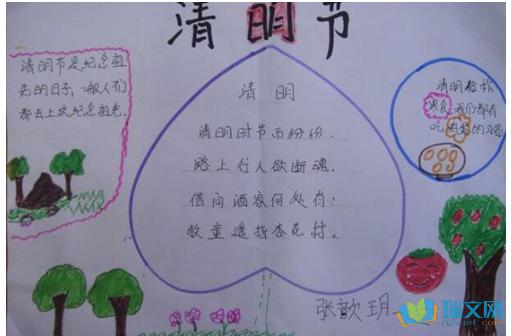 清明节
清明节是纪念祖
先的日子,一般人们
都去上坟纪念祖先.
清 明
清明时节雨纷纷.
路上行人欲断魂.
借问酒家何处有:
牧童遥指杏花村.
清明俗称
寒食,我们都有
吃 的习俗
张歆玥
瑞文网